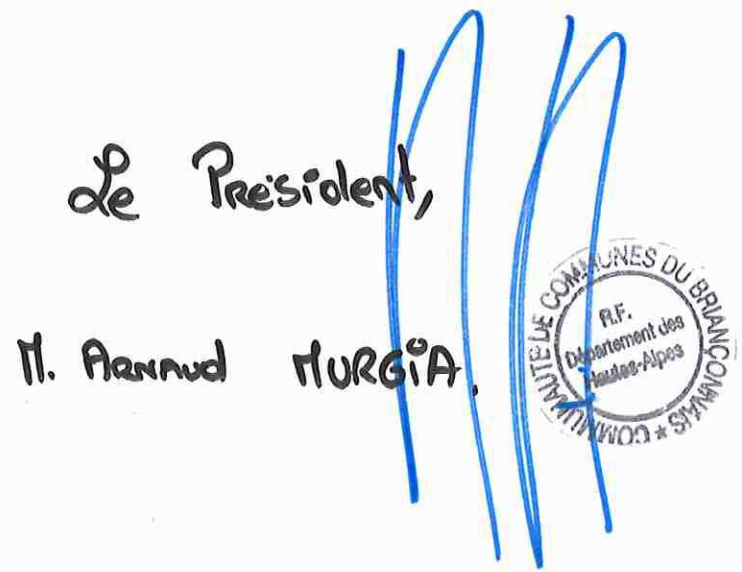 Le Président,
M. Arnaud MURGiA.
COMMUNAUTE DE COMMUNES DU BRIANÇONNAIS *
R.F.
Département des
Hautes-Alpes